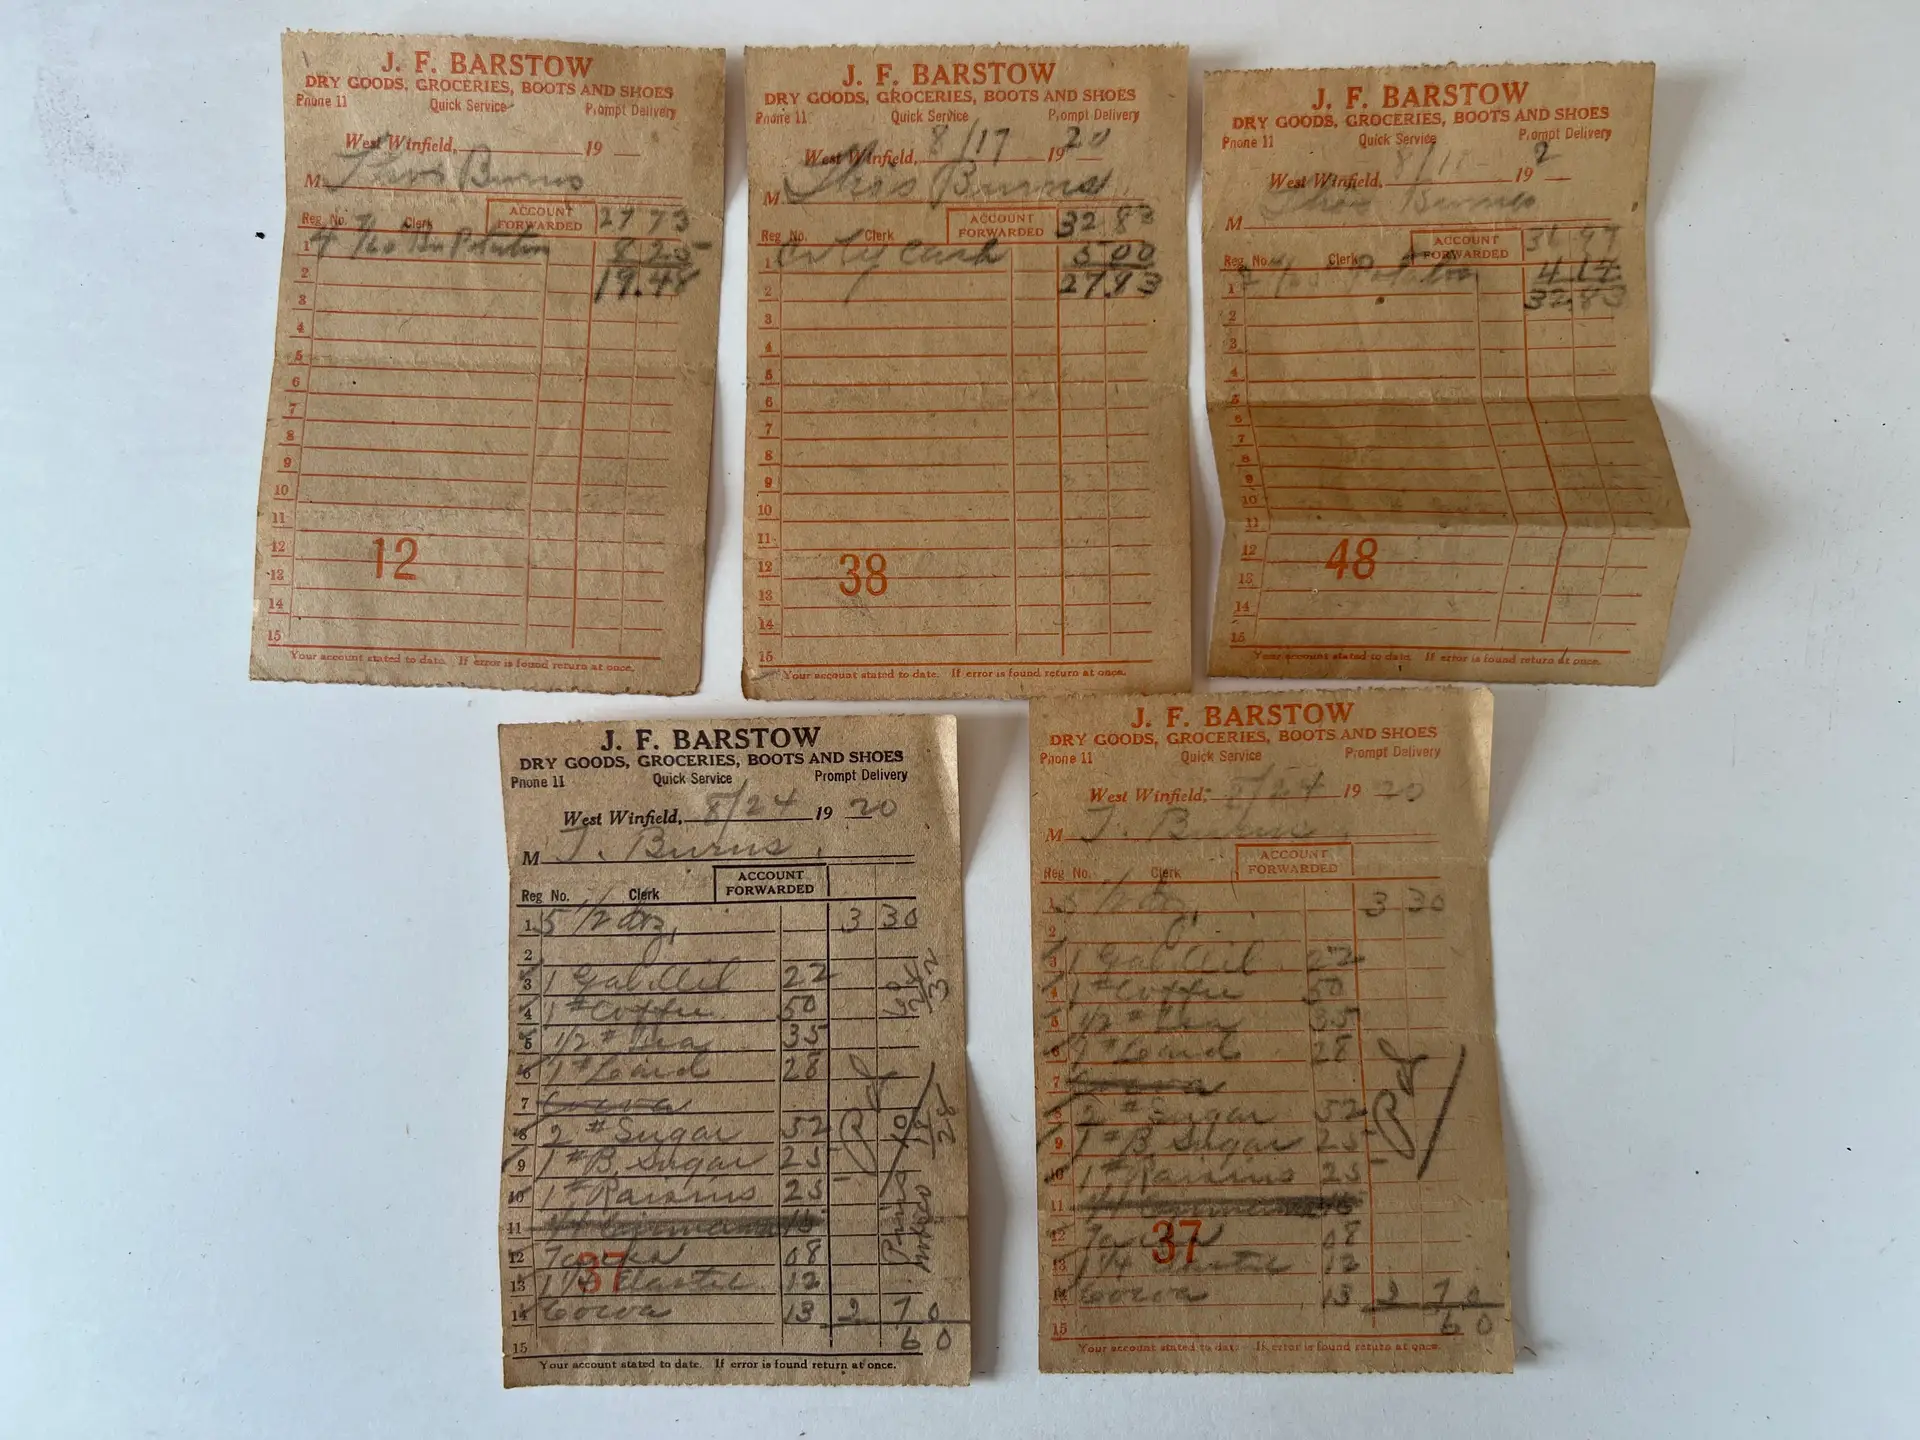 J. F. BARSTOW
DRY GOODS, GROCERIES, BOOTS AND SHOES
Phone 11 Quick Service Prompt Delivery
West Winfield, 19
M Thos Burns
Reg. No. Clerk ACCOUNT FORWARDED 27 73
1 8 25
2 19.48
3
4
5
6
7
8
9
10
11
12
13
14
15
12
Your account stated to date. If error is found return at once.
J. F. BARSTOW
DRY GOODS, GROCERIES, BOOTS AND SHOES
Phone 11 Quick Service Prompt Delivery
West Winfield, 8/17 1920
M Thos Burns
Reg. No. Clerk ACCOUNT FORWARDED 32 83
1 Cash 5 00
2 27.93
3
4
5
6
7
8
9
10
11
12
13
14
15
38
Your account stated to date. If error is found return at once.
J. F. BARSTOW
DRY GOODS, GROCERIES, BOOTS AND SHOES
Phone 11 Quick Service Prompt Delivery
West Winfield, 19 2
M Thos Burns
Reg. No. Clerk ACCOUNT FORWARDED
1
2 32.83
3
4
5
6
7
8
9
10
11
12
13
14
15
48
Your account stated to date. If error is found return at once.
J. F. BARSTOW
DRY GOODS, GROCERIES, BOOTS AND SHOES
Phone 11 Quick Service Prompt Delivery
West Winfield, 8/24 19 20
M T. Burns
Reg No. Clerk ACCOUNT FORWARDED
1 5 1/2 dz, 3 30
2
3 1 Gal Oil 22
4 1 # Coffee 50
5 1/2 # Tea 35
6 1 # Lard 28
7 Cocoa
8 2 # Sugar 52
9 1 # B. Sugar 25
10 1 # Raisins 25
11
12 08
13 1 1/4 Elastic 12
14 Cocoa 13 2 70
15 60
Pd
37
Your account stated to date. If error is found return at once.
J. F. BARSTOW
DRY GOODS, GROCERIES, BOOTS AND SHOES
Phone 11 Quick Service Prompt Delivery
West Winfield, 8/24 19 20
M T. Burns
Reg No. Clerk ACCOUNT FORWARDED
1 5 1/2 dz, 3 30
2
3 1 Gal Oil 22
4 1 # Coffee 50
5 1/2 # Tea 35
6 1 # Lard 28
7 Cocoa
8 2 # Sugar 52
9 1 # B. Sugar 25
10 1 # Raisins 25
11
12 08
13 1 1/4 Elastic 12
14 Cocoa 13 2 70
15 60
Pd
37
Your account stated to date. If error is found return at once.